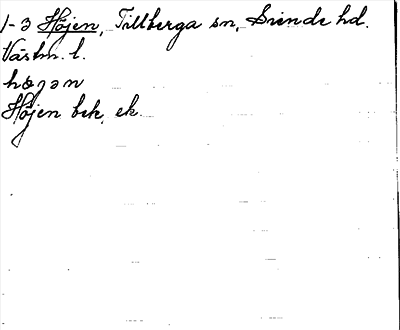 1-3 Höjen, Tillberga sn, Siende hd.
Västm. l.
Höjen bek. ek.